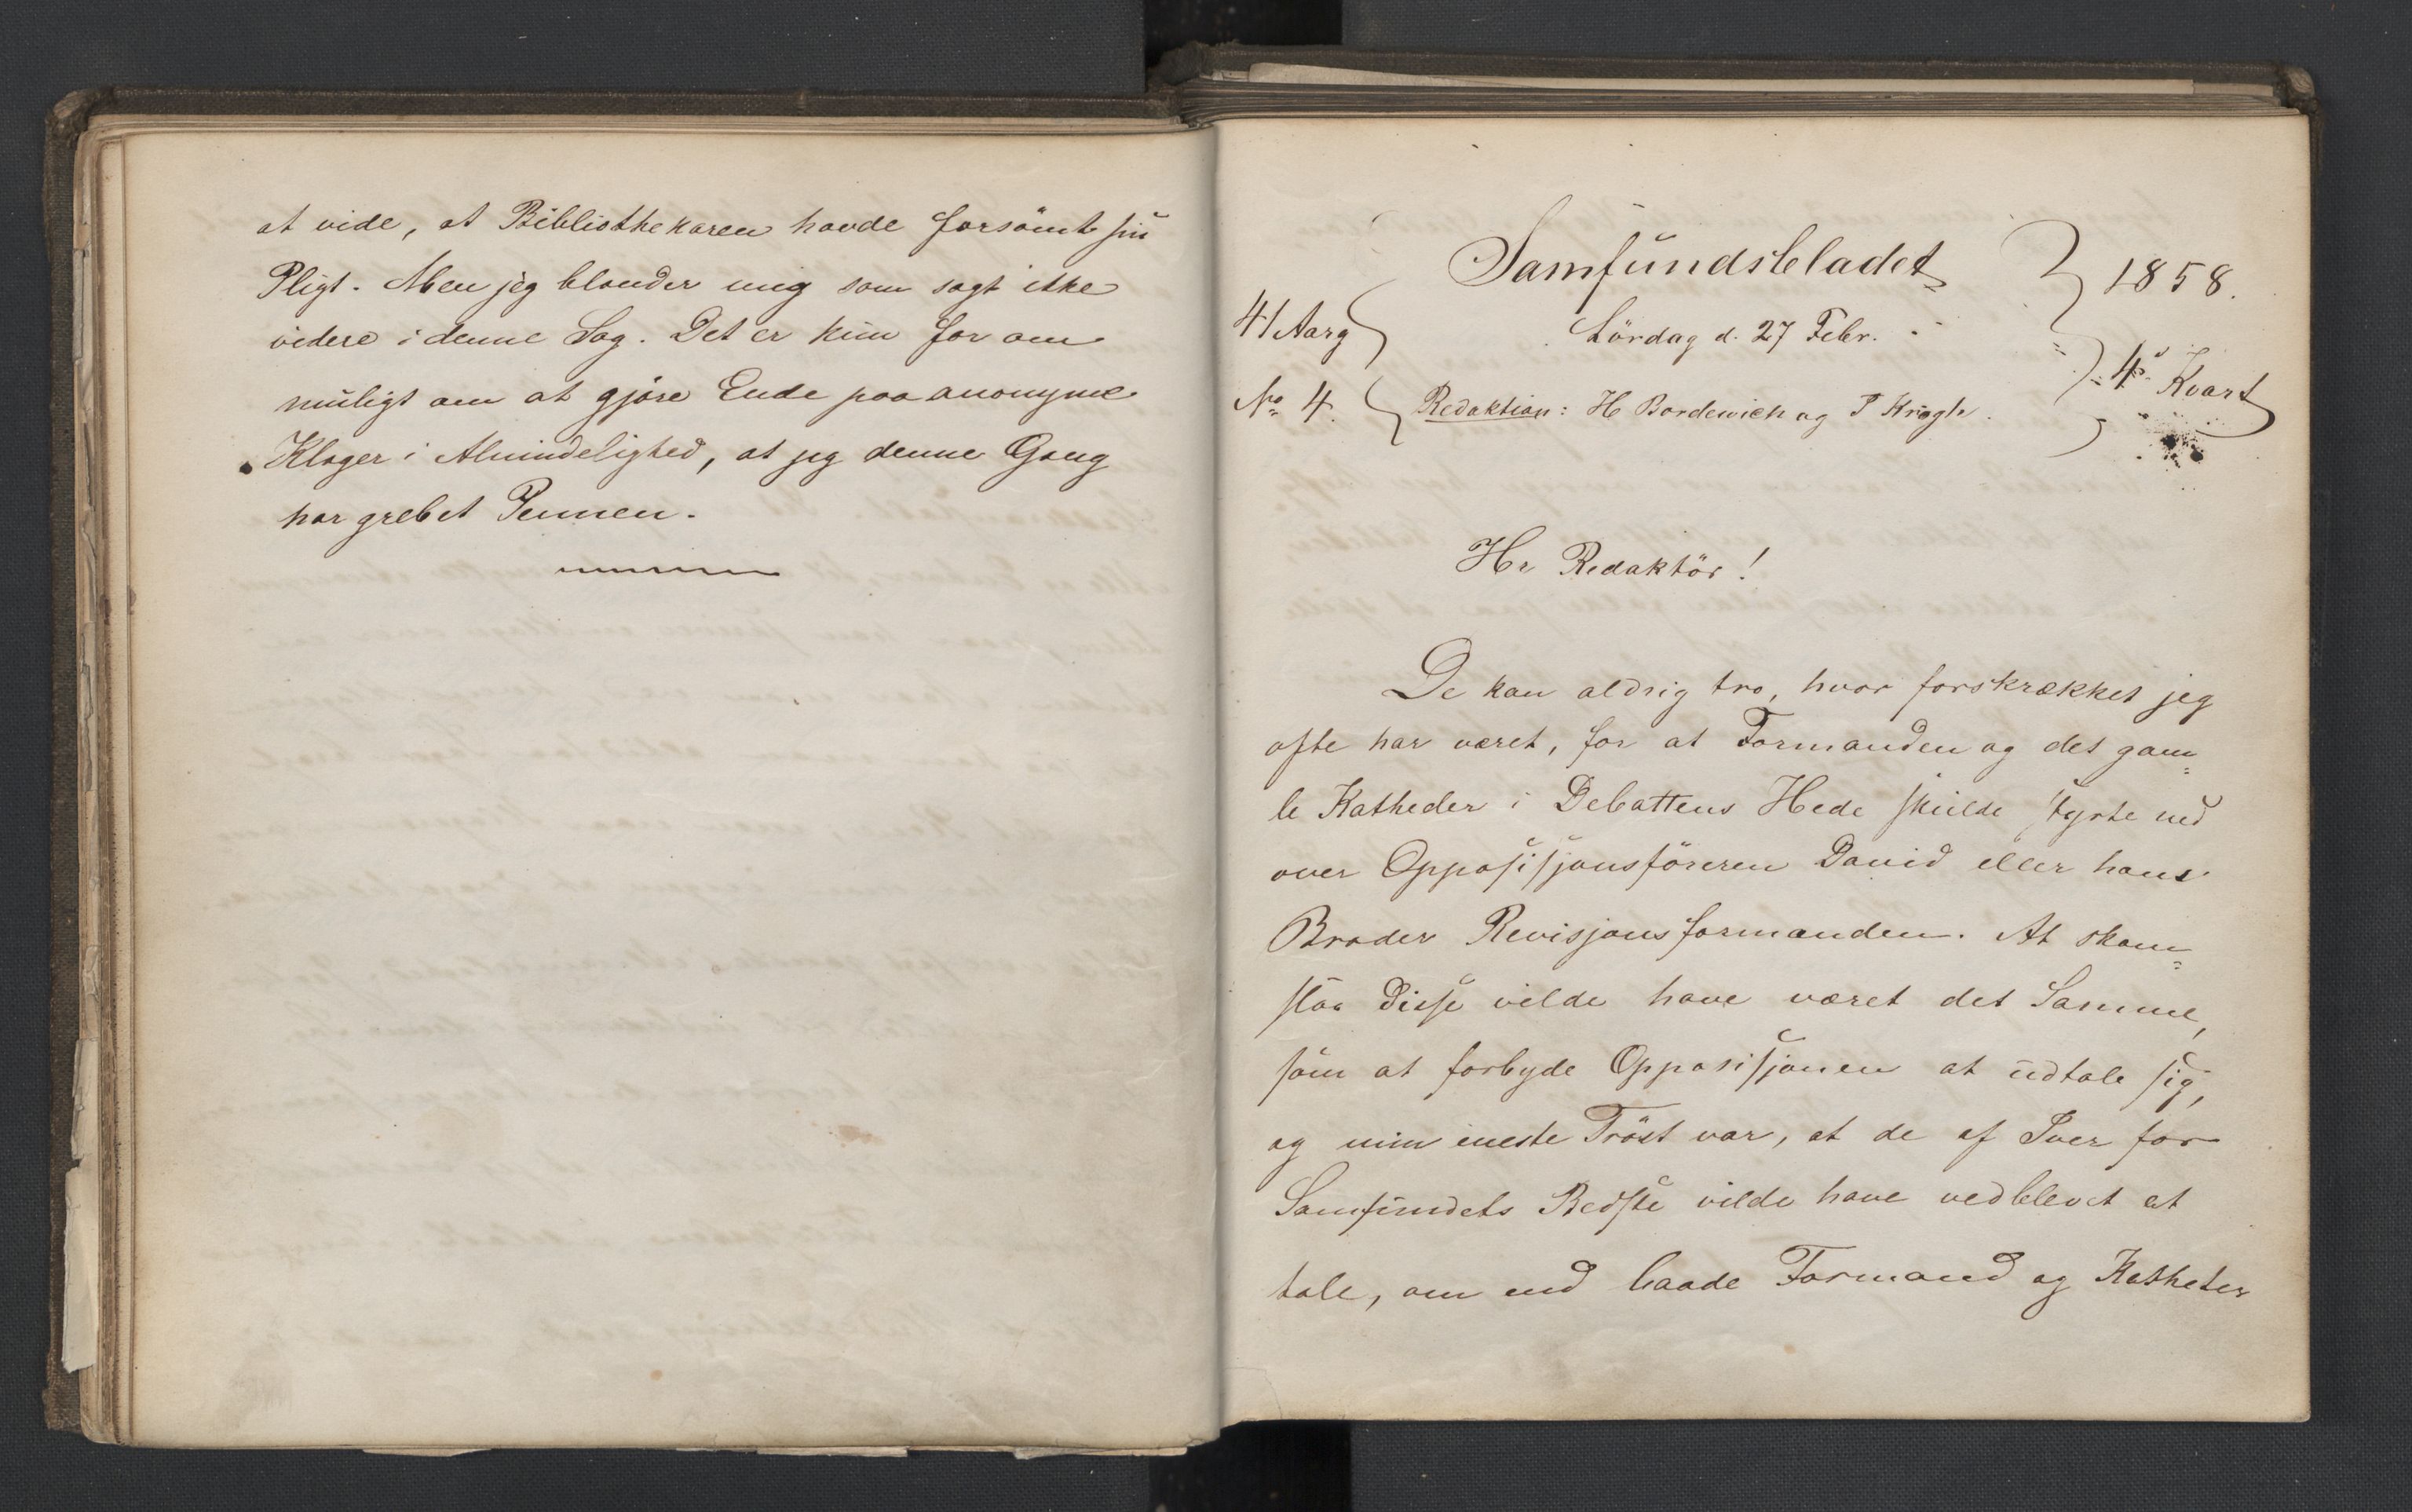 at vide, at Bibliothekaren havde forsömt sin
Pligt. Men jeg blander mig som sagt ikke
videre i denne Sag. Det er kun for om
muligt om at gjöre Ende paa anonyme
Klager i Almindelighed, at jeg denne Gang
har grebet Pennen.
Samfundsbladet
1858.
41 Aarg
Lördag d. 27 Febr.
4de Kvart
No 4.
Redaktion: H Bordewich og P Krogh.
Hr Redaktör!
De kan aldrig tro, hvor forskrækket jeg
ofte har været, for at Formanden og det gam=
le Katheder i Debattens Hede skulde styrte ned
over Opposisjonsföreren David eller hans
Broder Revisjonsformanden. At skam=
slaa Disse vilde have været det Samme,
som at forbyde Opposisjonen at udtale sig,
og min eneste Tröst var, at de af Iver for
Samfundets Bedste vilde have vedblevet at
tale, om end baade Formand og Katheter